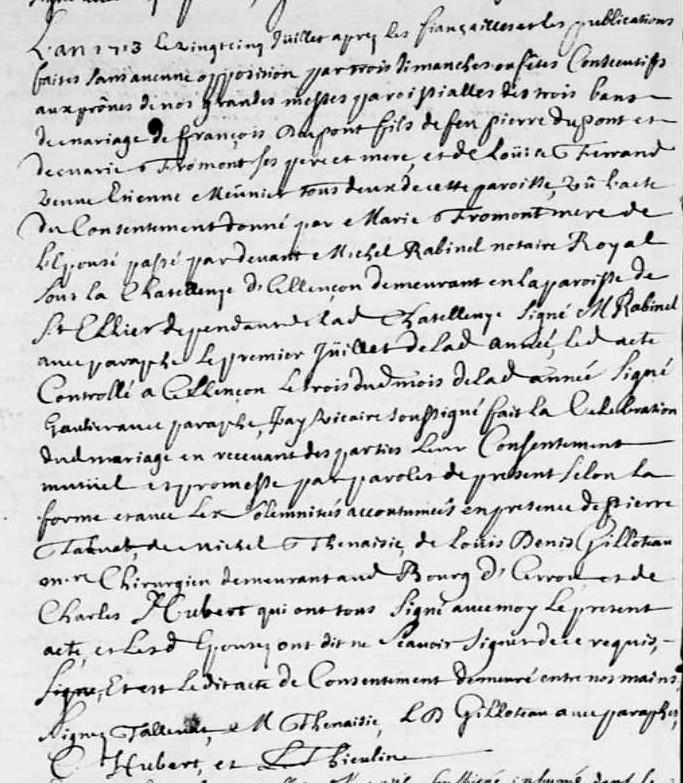 L'an 1713 le vingt cinq Juillet apres les fiançailles et les publications
faites sans aucune opposition par trois dimanches ou fêtes Consecutifs
aux prônes de nos grandes messes paroissialles des trois bans
de mariage de François Dupont fils de feu Pierre dupont et
de marie Fromont ses pere et mere, et de Loüise Ferrand
veuve Etienne Meûnier tous deux de cette paroisse, vû l'acte
du Consentement donné par Marie Fromont mere de
l'Epoux passé par devant Michel Rabinel notaire Royal
sous la Chatellenye d'Allençon demeurant en la paroisse de
St Ellier dependant de lad Chatellenye signé M Rabinel
avec paraphe le premier Jüillet de lad année, led acte
Controllé a Allençon le trois dud mois de lad année signé
Gaultier avec paraphe, J'ay vicaire soussigné fait la Celebration
dud mariage en recevant des parties leur Consentement
mutüel et promesse par paroles de present selon la
forme et avec les solemnités accoutumées en presence de Pierre
de Michel Thenaisie, de Louis Denis Gilloteau
m.re Chirurgien demeurant aud Bourg d' et de
Charles Hubert qui ont tous signé avec moy le present
acte, et lesd Epoux ont dit ne sçavoir signer de ce requis,
signe, Et est ledit acte de Consentement demeuré entre nos mains,
Signez M Thenaisie, L D Gilloteau avec paraphe,
C Hubert, et